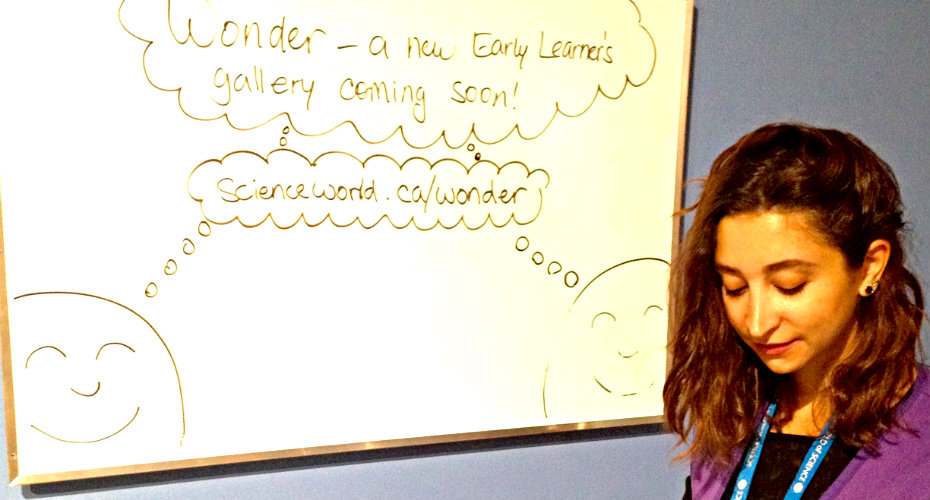 Wonder – a new Early Learner's
gallery coming soon!
scienceworld.ca/wonder
of SCIENCE